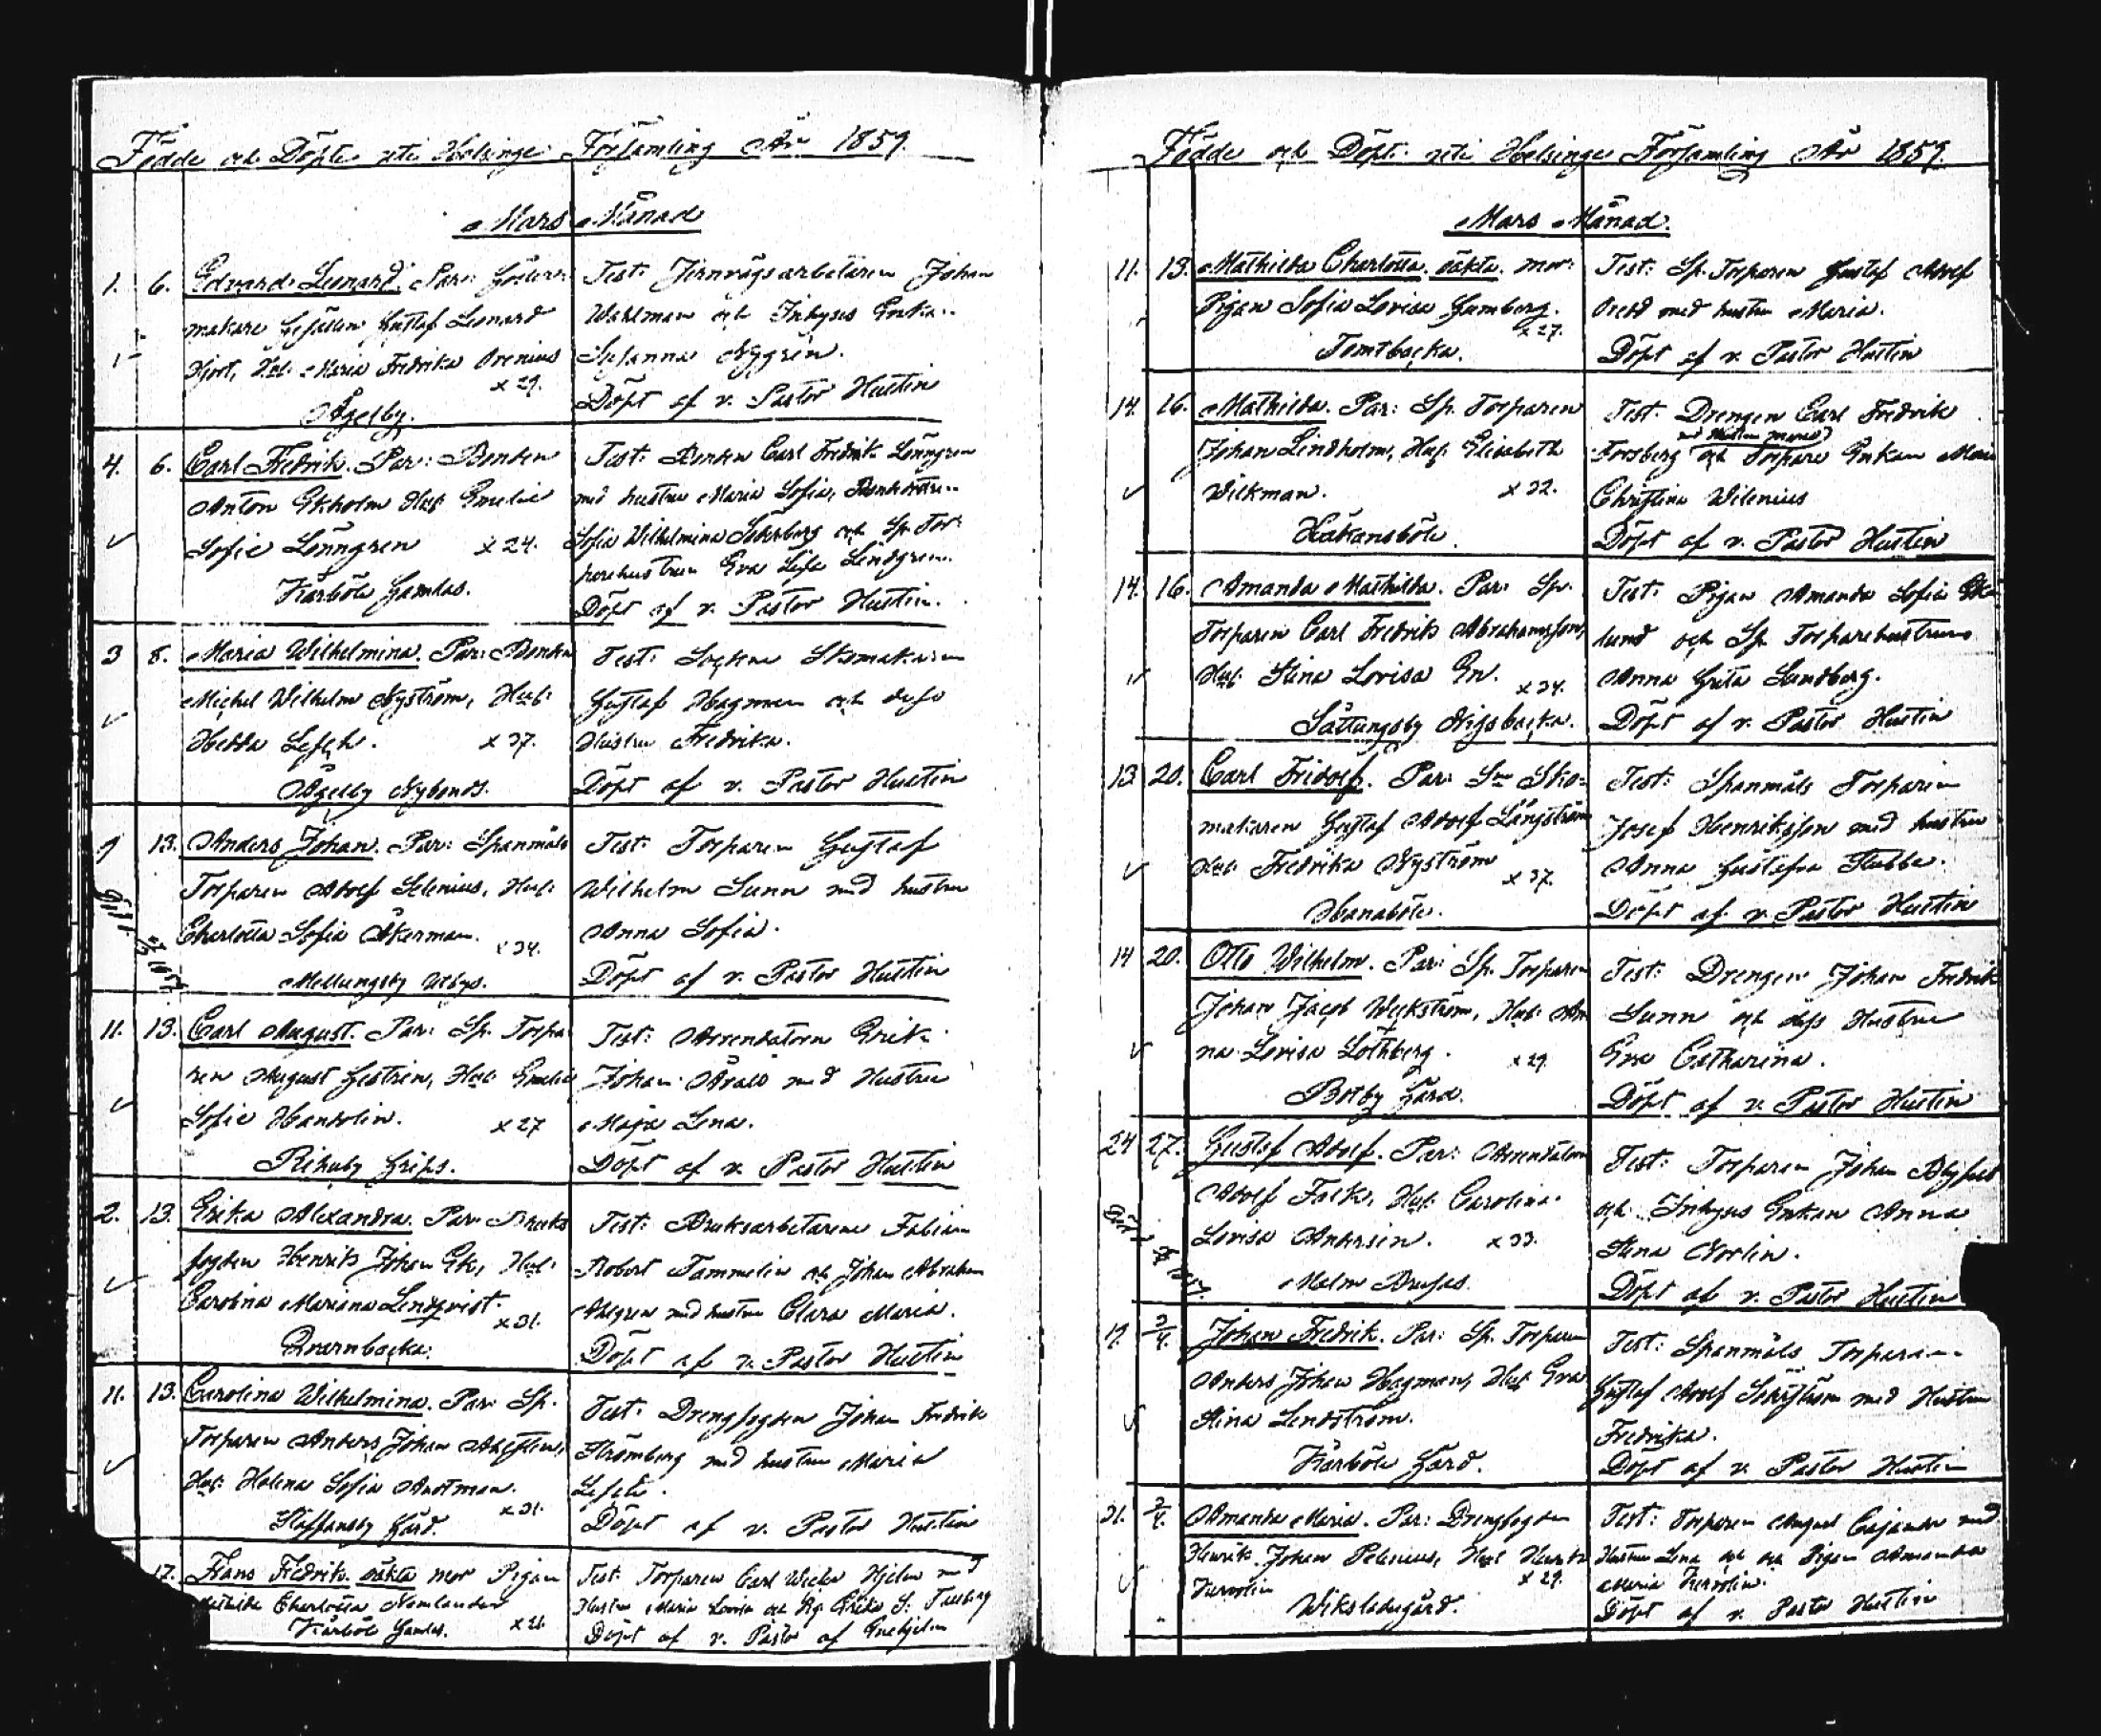 Födde och Döpte uti Helsinge Församling År 1859
Mars Månad
1. 6. Edvard Leonard. Par:
makare Gesällen Gustaf Leonard
Hjort, Hust: Maria Fredrika Orenius
x 29.
Åggelby.
Test: Jernvägsarbetaren Johan
Wahlman och Inhyses Enkan
Susanna Nygrén.
Döpt af v. Pastor Hustin
4. 6. Carl Fredrik. Par: Bonden
Anton Ekholm Hust Emelie
Sofie Lönngren x 24.
Kårböle Gamlas.
Test: Bonden Carl Fredrik Lönngren
med hustru Maria Sofia,
Sofia Wilhelmina Söderberg och Sp. Tor-
parehustrun Eva Lindgren.
Döpt af v. Pastor Hustin.
3 8. Maria Wilhelmina. Par: Bonden
Michel Wilhelm Nyström, Hust:
Hedda x 37.
Åggelby Nybonds.
Test: Socknen Skomakaren
Gustaf Hagman och dess
Hustru Fredrika.
Döpt af v. Pastor Hustin
9 13. Anders Johan. Par: Spanmåls
Torparen Adolf Selenius, Hust:
Charlotta Sofia Åkerman. x 34.
Mellungsby Utbys.
Test: Torparen Gustaf
Wilhelm Sunn med hustru
Anna Sofia.
Döpt af v. Pastor Hustin
11. 13. Carl August. Par: Sp. Torpa
ren August Hust: Emelie
Sofie Handolin. x 27
Grips.
Test: Arrendatorn Erik
Johan med Hustru
Maja Lena.
Döpt af v. Pastor Hustin
2. 13. Erika Alexandra. Par: Bruks
fogden Henrik Johan Ek, Hust:
Carolina Mariana Lindqvist.
x 31.
Qvarnbacka.
Test: Bruksarbetarene Fabian
Robert Tammelin och Johan Abraham
Ahlgren med hustru Clara Maria.
Döpt af v. Pastor Hustin
11. 13. Carolina Wilhelmina. Par: Sp.
Torparen Anders Johan
Hust: Helena Sofia
x 31.
Staffansby Gård.
Test: Drengfogden Johan Fredrik
Strömberg med hustru Maria
Döpt af v. Pastor Hustin
17. Frans Fredrik. oäkta mor Pigan
Charlotta Nomlander
Kårböle Gamlas. x 26.
Test: Torparen Carl Hjelm med
Hustru Maria Lovisa och Pig.
Döpt af v. Pastor af Enehjelm
Födde och Döpte uti Helsinge Församling År 1859.
Mars Månad.
11. 13. Mathilda Charlotta. oäkta. mor:
Pigan Sofia Lovisa Gumberg.
x 27.
Tomtbacka.
Test: Sp. Torparen Gustaf Adolf
med hustru Maria.
Döpt af v. Pastor Hustin
14. 16. Mathilda. Par: Sp. Torparen
Johan Lindholm, Hust: Elisabeth
Wickman. x 32.
Håkansböle.
Test: Drengen Carl Fredrik
med Hustru
Forsberg och Torpare Enkan Maria
Christina Wilenius
Döpt af v. Pastor Hustin
14. 16. Amanda Mathilda. Par: Sp.
Torparen Carl Fredrik Abrahamsson,
Hust Stina Lovisa En. x 34.
Sottungsby Nigsbacka.
Test: Pigan Amanda Sofia Ek
lund och Sp. Torparehustrun
Anna Greta Lundberg.
Döpt af v. Pastor Hustin
13 20. Carl Fridolf. Par: Sn Sko-
makaren Gustaf Adolf Långström
Hust: Fredrika Nyström x 37.
Hanaböle.
Test: Spanmåls Torparen
Josef Henriksson med hustru
Anna Gustafva Stubbe.
Döpt af v. Pastor Hustin
14 20. Otto Wilhelm. Par: Sp. Torparen
Johan Jacob Weckström, Hust: An
na Lovisa Löthberg. x 29.
Botby Gård.
Test: Drengen Johan Fredrik
Sunn och dess Hustru
Eva Catharina.
Döpt af v. Pastor Hustin
24 27. Gustaf Adolf. Par: Arrendatorn
Adolf Falk, Hust: Carolina
Lovisa Andersin. x 33.
Malm Brusas.
Test: Torparen Johan
och Inhyses Enkan Anna
Stina Norlin.
Döpt af v. Pastor Hustin
19. 3/4. Johan Fredrik. Par: Sp. Torparen
Anders Johan Hagman, Hust Eva
Stina Lindström.
Kårböle Gård.
Test: Spanmåls Torparen
Gustaf Adolf med Hustru
Fredrika.
Döpt af v. Pastor Hustin
31. 3/4. Amanda Maria. Par: Drengfogden
Henrik Johan Hust
x 29.
Test: Torparen August Cajander med
Hustru Lena och Pigan Amanda
Maria
Döpt af v. Pastor Hustin